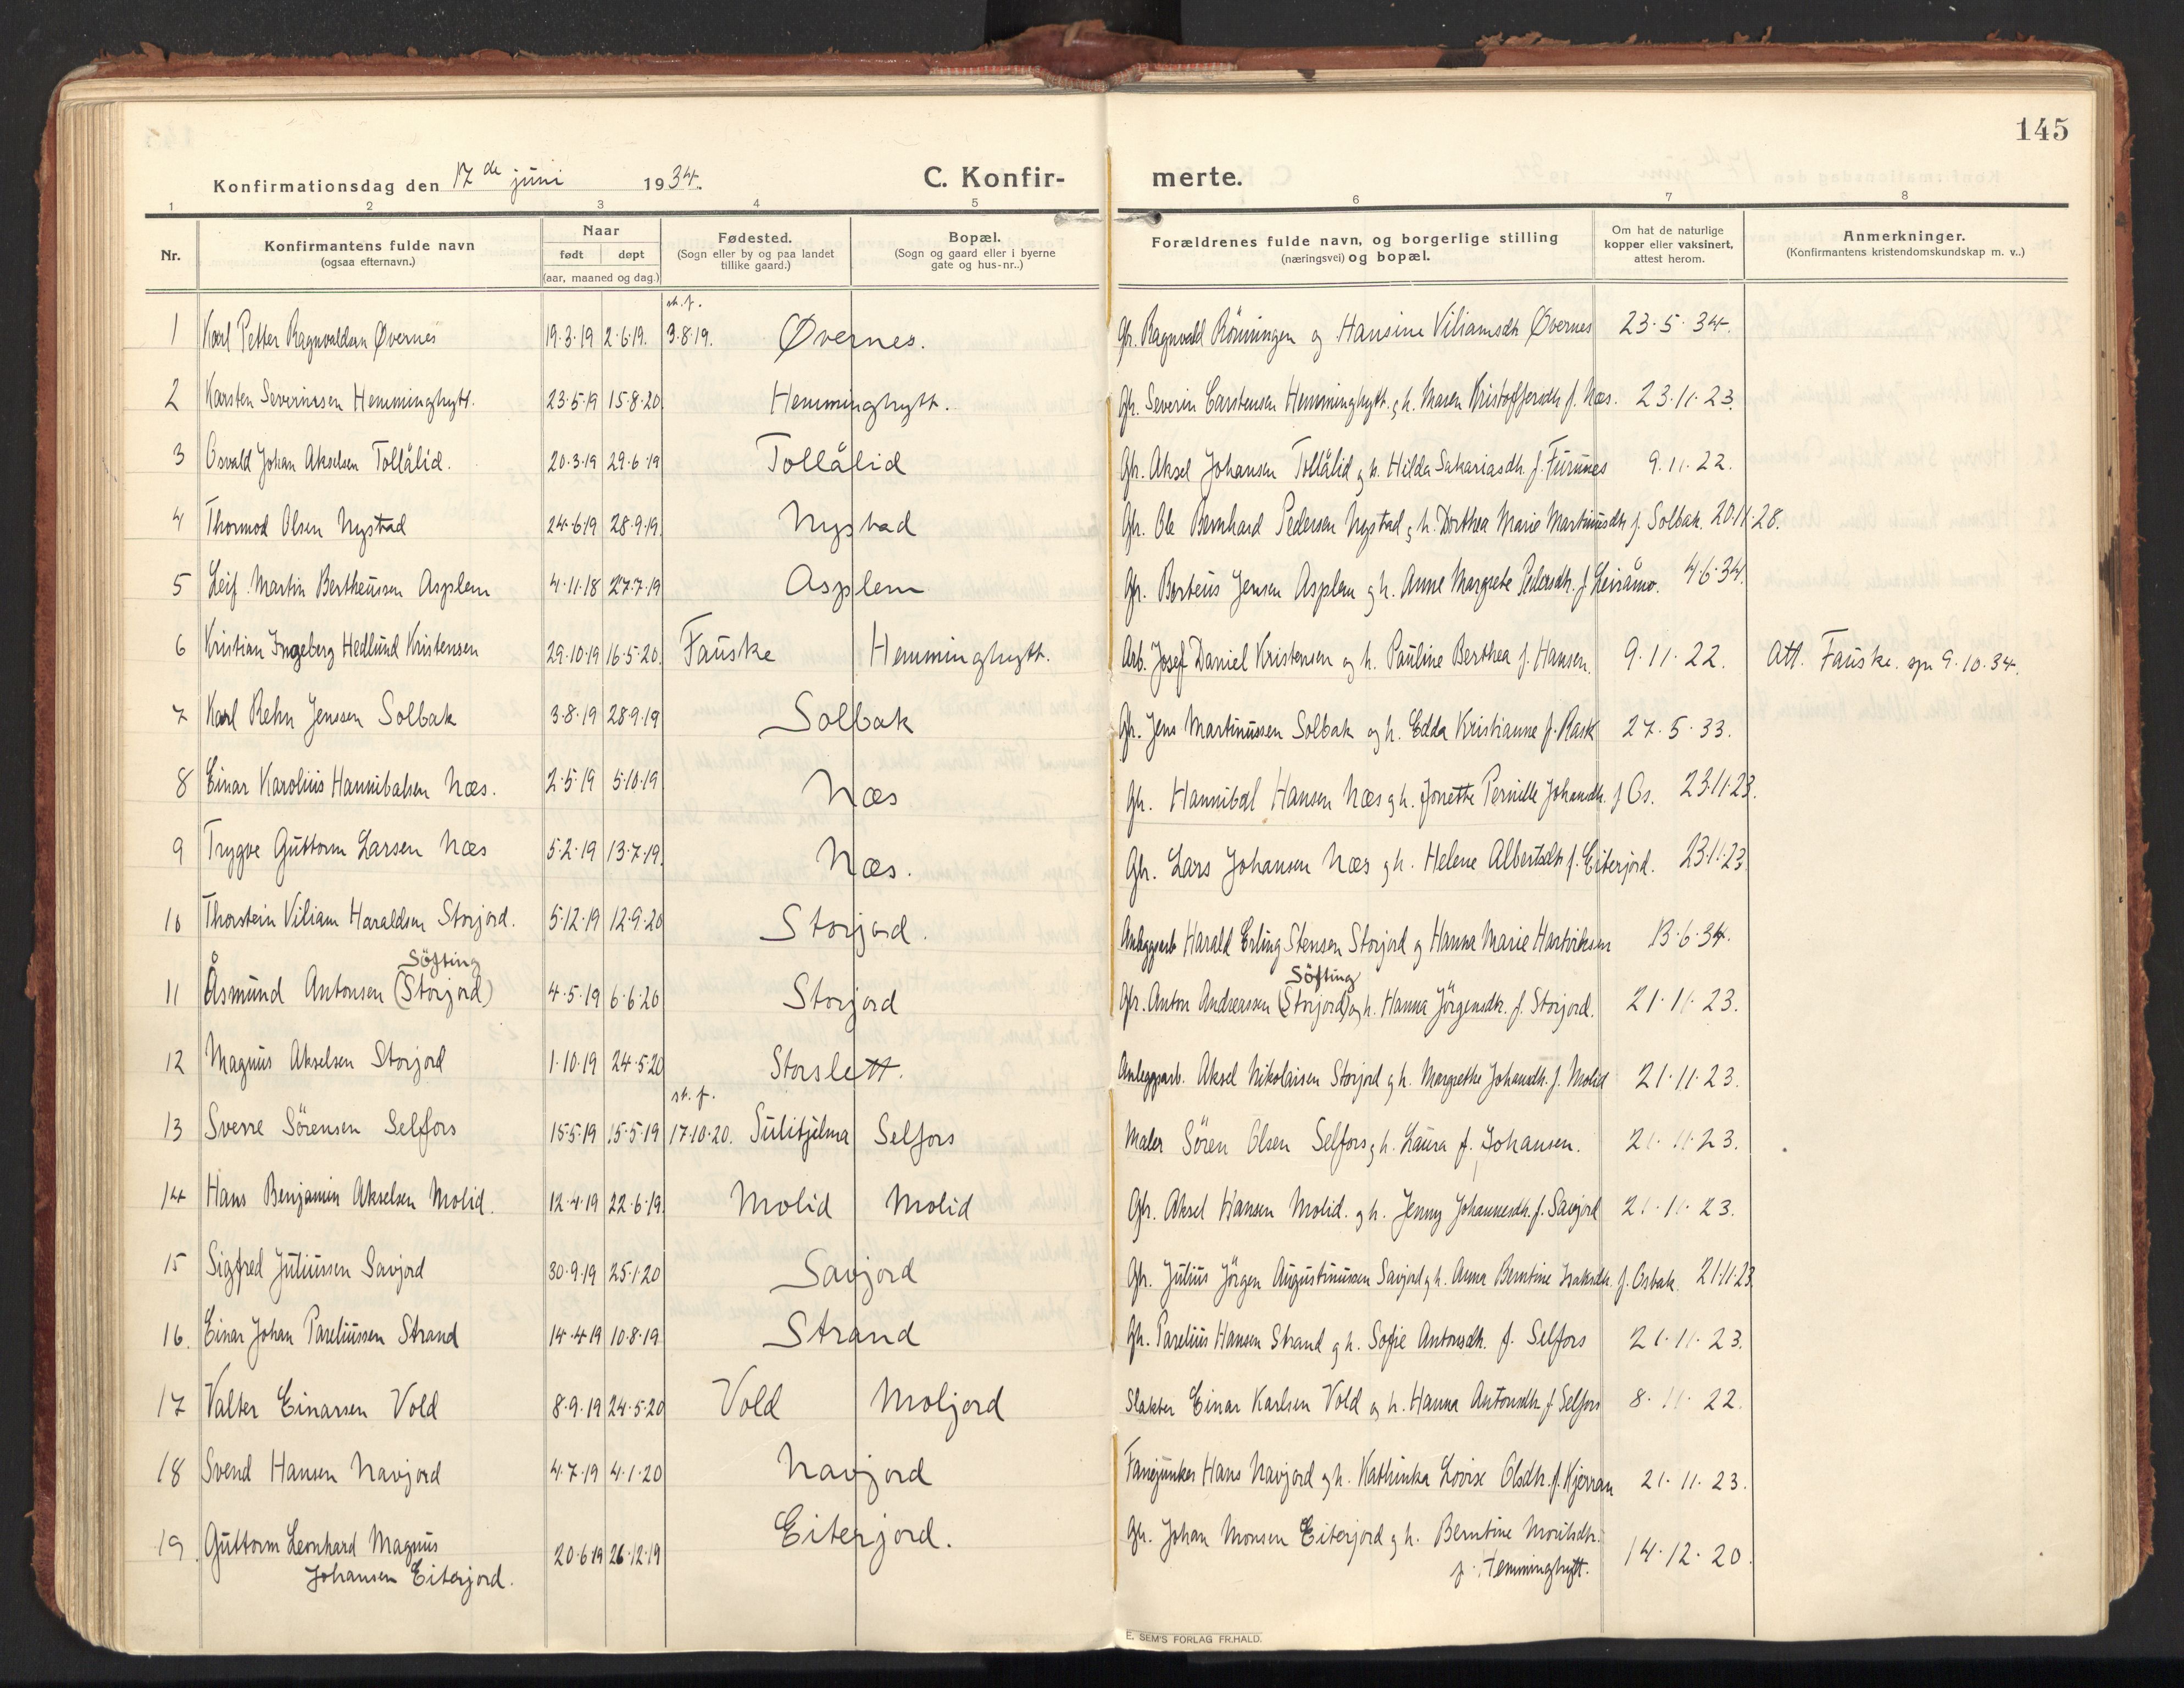 145
Konfirmationsdag den 17de juni 1934. C. Konfirmerte.
1 2 3 4 5 6 7 8
Nr. Konfirmantens fulde navn (ogsaa efternavn.) Naar født døpt (aar, maaned og dag.) Fødested. (Sogn eller by og paa landet tillike gaard.) Bopæl. (Sogn og gaard eller i byerne gate og hus-nr..) Forældrenes fulde navn, og borgerlige stilling (næringsvei) og bopæl. Om hat de naturlige kopper eller vaksinert, attest herom. Anmerkninger. (Konfirmantens kristendomskundskap m. v..)
1 Karl Petter Ragnvaldsen Øvernes 19.3.19 2.6.19. st. f. 3.8.19. Øvernes. Gb. Ragnvald Rönningen og Hansine Viliamsdtr Øvernes 23.5.34.
2 Karsten Severinsen Hemminghytt. 23.5.19 15.8.20 Hemminghytt. Gb. Severin Carstensen Hemminghytt. og h. Maren Kristoffersdtr f. Næs. 23.11.23.
3 Osvald Johan Akselsen Tollålid. 20.3.19 29.6.19 Tollålid Gb. Aksel Johansen Tollålid og h. Hilda Sakariasdtr. f. Furunes 9.11.22.
4 Thormod Olsen Nystad 24.6.19 28.9.19. Nystad Gb. Ole Bernhard Pedersen Nystad og h. Dorthea Marie Martinusdtr f. Solbak. 20.11.28.
5 Leif Martin Bertheussen Asplem 4.11.18 27.7.19 Asplem Gb. Berteus Jensen Asplem og h. Anne Margrete Pedersdtr. f. Leiråmo. 4.6.34.
6 Kristian Ingeberg Hedlund Kristensen 29.10.19 16.5.20. Fauske Hemminghytt. Arb. Josef Daniel Kristensen og h. Pauline Berthea f. Hansen. 9.11.22. Att. Fauske. spr 9.10.34.
7 Karl Rehn Jenssen Solbak 3.8.19 28.9.19 Solbak Gb. Jens Martinussen Solbak og h. Edda Kristianne f. Rask 27.5.33.
8 Einar Karolius Hannibalsen Næs. 2.5.19 5.10.19 Næs Gb. Hannibal Hansen Næs og h. Jonette Pernille Johansdtr. f. Os. 23.11.23.
9 Trygve Guttorm Larsen Næs 5.2.19 13.7.19. Næs. Gb. Lars Johansen Næs og h. Helene Albertsdtr f. Eiterjord. 23.11.23
10 Thorstein Viliam Haraldsen Storjord. 5.12.19 12.9.20 Storjord. Anleggsarb Harald Erling Stensen Storjord og Hanna Marie Hartviksen 13.6.34.
Söfting Söfting
11 Åsmund Antonsen (Storjord) 4.5.19 6.6.20 Storjord Gb. Anton Andreassen (Storjord) og h. Hanna Jörgensdtr. f. Storjord. 21.11.23.
12 Magnus Akselsen Storjord 1.10.19 24.5.20 Storslett. Anleggsarb. Aksel Nikolaisen Storjord og h. Margrethe Johansdtr. f. Molid 21.11.23.
13 Sverre Sörensen Selfors 15.5.19 15.5.19 st. f. 17.10.20. Sulitjelma Selfors Maler Sören Olsen Selfors og h. Laura f. Johansen. 21.11.23.
14 Hans Benjamin Akselsen Molid. 12.4.19 22.6.19. Molid Molid Gb. Aksel Hansen Molid. og h. Jenny Johannesdtr. f. Savjord 21.11.23.
15 Sigfred Juliussen Savjord 30.9.19 25.1.20 Savjord Gb. Julius Jörgen Augustinussen Savjord og h. Anna Berntine Isaksdtr. f. Osbak. 21.11.23
16. Einar Johan Pareliussen Strand 14.4.19 10.8.19. Strand Gb. Parelius Hansen Strand og h. Sofie Antonsdtr. f. Selfors 21.11.23.
17 Valter Einarsen Vold 8.9.19 24.5.20 Vold Moljord Slakter Einar Karlsen Vold og h. Hanna Antonsdtr f. Selfors 8.11.22.
18 Svend Hansen Navjord 4.7.19 4.1.20 Navjord Fanejunker Hans Navjord og h. Kathinka Lovise Olsdtr. f. Kjerran 21.11.23.
19. Guttorm Leonhard Magnus 20.6.19 26.12.19 Eiterjord. Gb. Johan Monsen Eiterjord og h. Berntine Moritsdtr. 14.12.20.
Johansen Eiterjord. f. Hemminghytt.
E. SEM'S FORLAG FR.HALD.